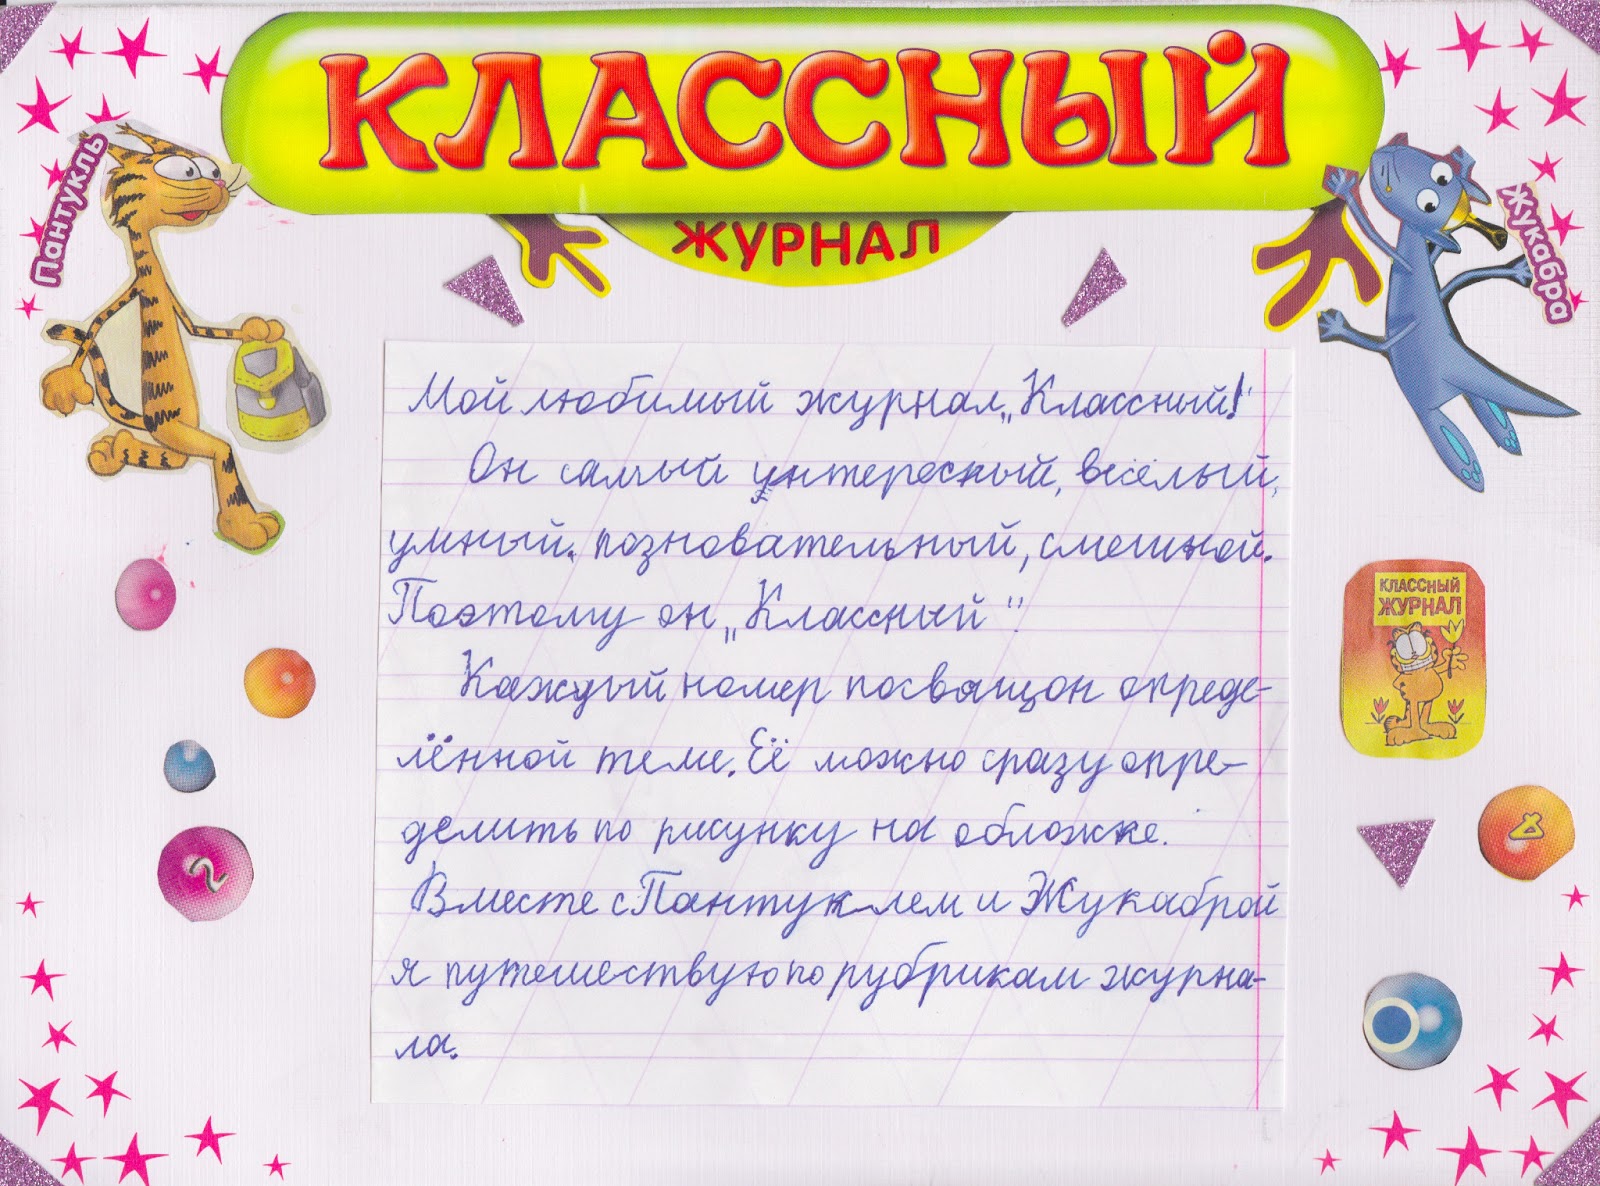 КЛАССНЫЙ
ЖУРНАЛ
Пантукль
Жукабра
Мой любимый журнал „Классный!“
Он самый интересный, весёлый,
умный, позновательный, смешной.
Поэтому он „Классный“.
Каждый номер посвящон опреде-
лённой теме. Её можно сразу опре-
делить по рисунку на обложке.
Вместе с Пантуклем и Жукаброй
я путешествую по рубрикам журна-
ла.
КЛАССНЫЙ
ЖУРНАЛ
2
4